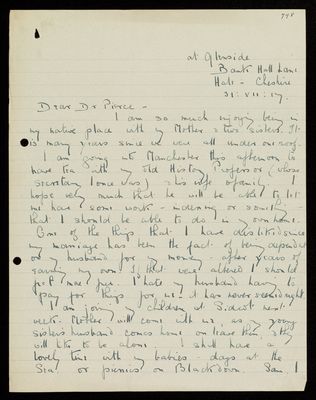 798
at Glenside
Bank Hall Lane
Hale - Cheshire
31: VII: 17.
Dear Dr Pierce -
I am so much enjoying being in
my native place with my Mother & two sisters. It
is many years since we were all under one roof.
I am going into Manchester this afternoon to
have tea with my old History Professor (whose
Secretary I once was) & his wife & family. I
hope very much that he will be able to let
me have some work - indexing or something -
that I should be able to do in my own home.
One of the things that I have disliked since
my marriage has been the fact of being dependent
on my husband for my money - after years of
earning my own. If that were altered I should
feel more free. I hate my husband having to
pay for things for me! It has never seemed right.
I am joining my children at Sidcot next
week. Mother will come with me, as my young
sister's husband comes home on leave then, & they
will like to be alone. I shall have a
lovely time with my babies - days at the
Sea or picnics on Blackdown. Sam, I